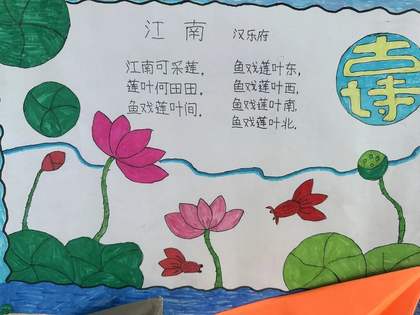 江南 汉乐府
江南可采莲，
莲叶何田田，
鱼戏莲叶间，
鱼戏莲叶东，
鱼戏莲叶西，
鱼戏莲叶南，
鱼戏莲叶北。
古诗